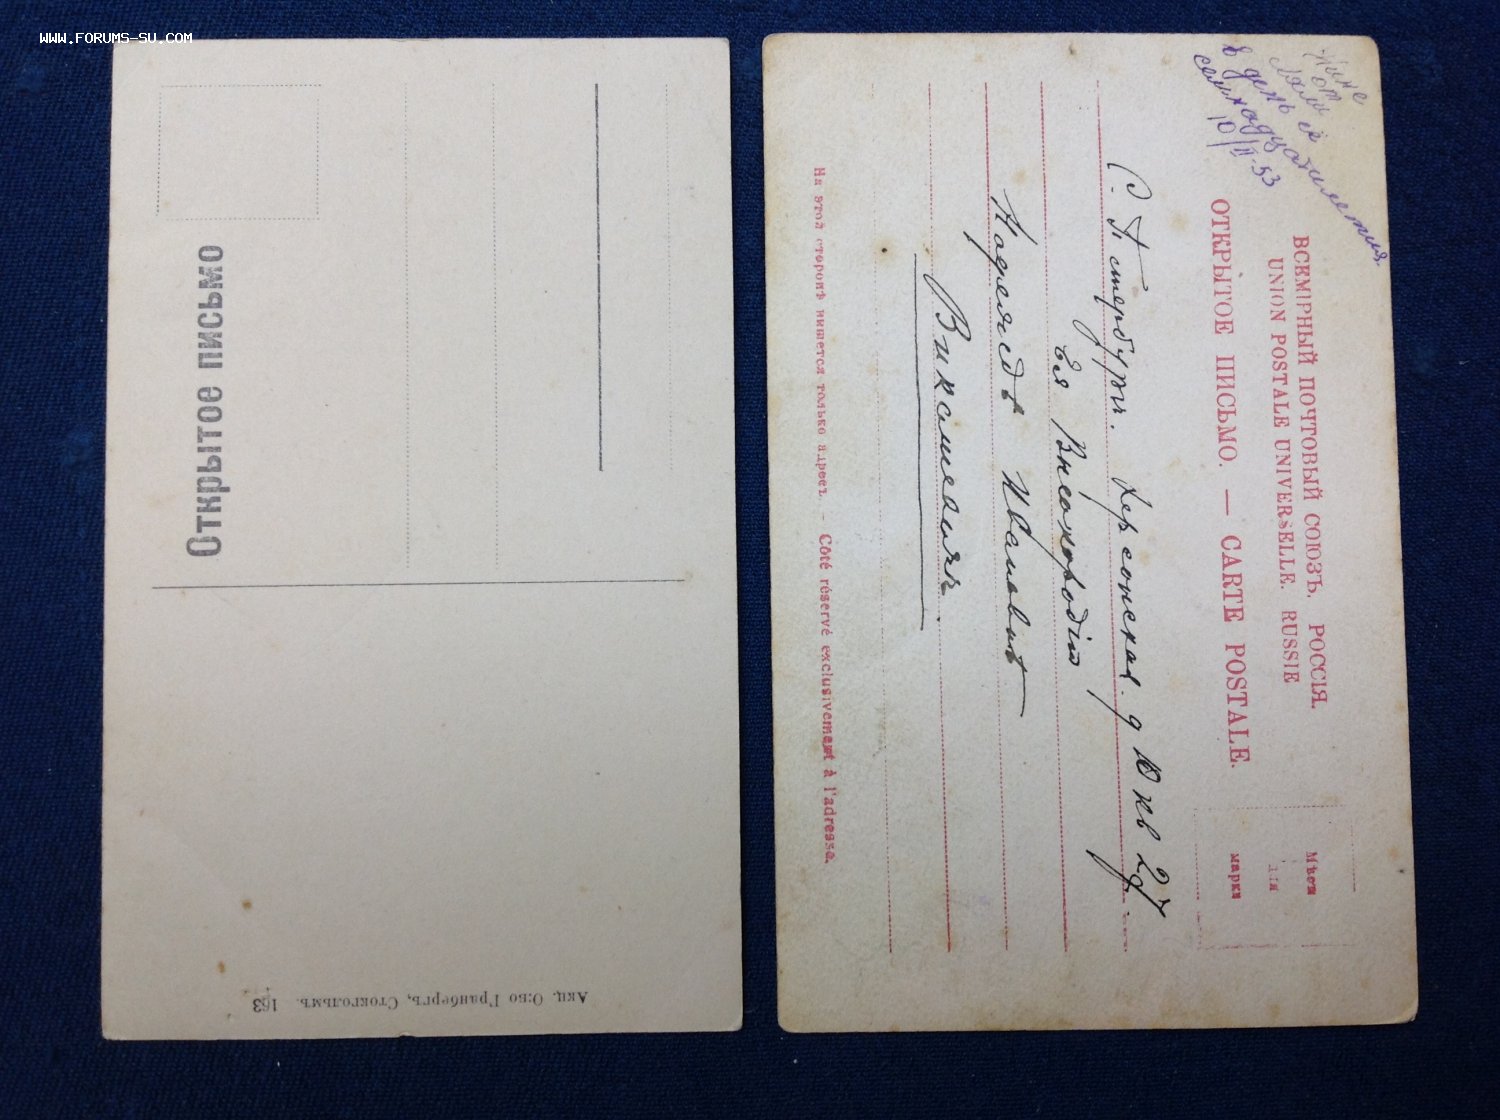 WWW.FORUMS-SU.COM
Открытое письмо
Акц. О-во Гранбергъ, Стокгольмъ. 163
Нине
от
Ляли
в день ея
семнадцатилетия.
10/II-53
ВСЕМІРНЫЙ ПОЧТОВЫЙ СОЮЗЪ. РОССІЯ.
UNION POSTALE UNIVERSELLE. RUSSIE
ОТКРЫТОЕ ПИСЬМО. — CARTE POSTALE.
Мѣсто
для
марки
С. Петербургъ. Херсонская. д 10 кв 27.
Ея Высокородію
Надеждѣ Ивановнѣ
На этой сторонѣ пишется только адресъ. – Côté réservé exclusivement à l'adresse.